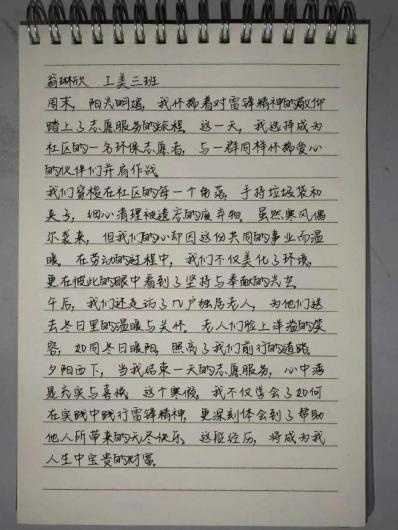 翁琳欣 工美三班
周末,阳光明媚,我怀揣着对雷锋精神的敬仰
踏上了志愿服务的旅程。这一天,我选择成为
社区的一名环保志愿者,与一群同样怀揣爱心
的伙伴们并肩作战。
我们穿梭在社区的每一个角落,手持垃圾袋和
夹子,细心清理被遗忘的废弃物。虽然寒风偶
尔袭来,但我们的心却因这份共同的事业而温
暖。在劳动的过程中,我们不仅美化了环境,
更在彼此的眼中看到了坚持与奉献的光芒。
午后,我们还走访了几户独居老人,为他们送
去冬日里的温暖与关怀。老人们脸上洋溢的笑
容,如同冬日暖阳,照亮了我们前行的道路。
夕阳西下,当我结束一天的志愿服务,心中满
是充实与喜悦。这个寒假,我不仅学会了如何
在实践中践行雷锋精神,更深刻体会到了帮助
他人所带来的无尽快乐。这段经历,将成为我
人生中宝贵的财富。